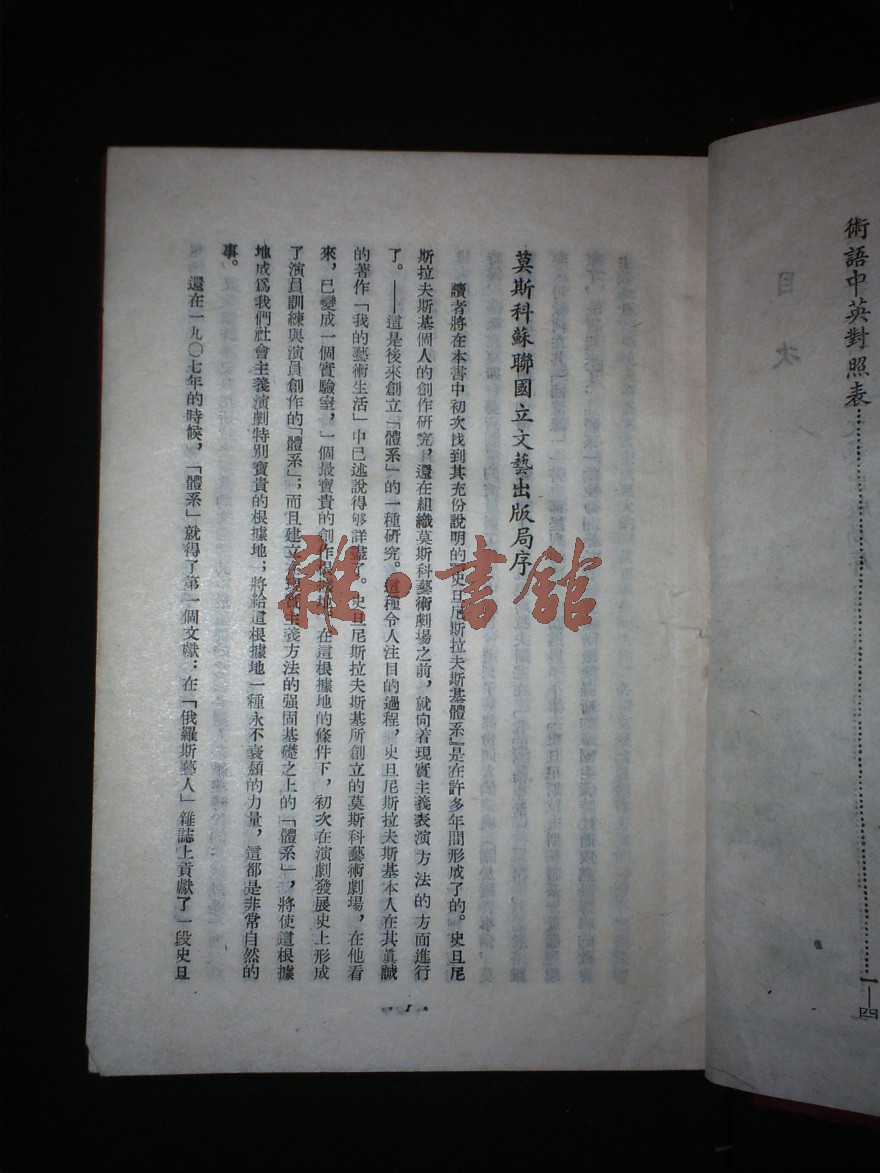 術語中英對照表……………一—四
目次
莫斯科蘇聯國立文藝出版局序
讀者將在本書中初次找到其充份說明的『史旦尼斯拉夫斯基體系』是在許多年間形成了的。史旦尼
斯拉夫斯基個人的創作研究，還在組織莫斯科藝術劇場之前，就向着現實主義表演方法的方面進行
了。——這是後來創立「體系」的一種研究。這種令人注目的過程，史旦尼斯拉夫斯基本人在其眞誠
的著作「我的藝術生活」中已述說得够詳盡了。史旦尼斯拉夫斯基所創立的莫斯科藝術劇場，在他看
來，已變成一個實驗室，一個最寶貴的創作根據地，在這根據地的條件下，初次在演劇發展史上形成
了演員訓練與演員創作的「體系」；而且建立在現實主義方法的强固基礎之上的「體系」，將使這根據
地成爲我們社會主義演劇特別寶貴的根據地；將給這根據地一種永不衰頹的力量，這都是非常自然的
事。
還在一九〇七年的時候，「體系」就得了第一個文獻；在「俄羅斯藝人」雜誌上貢獻了一段史旦
·1·
雜·書館